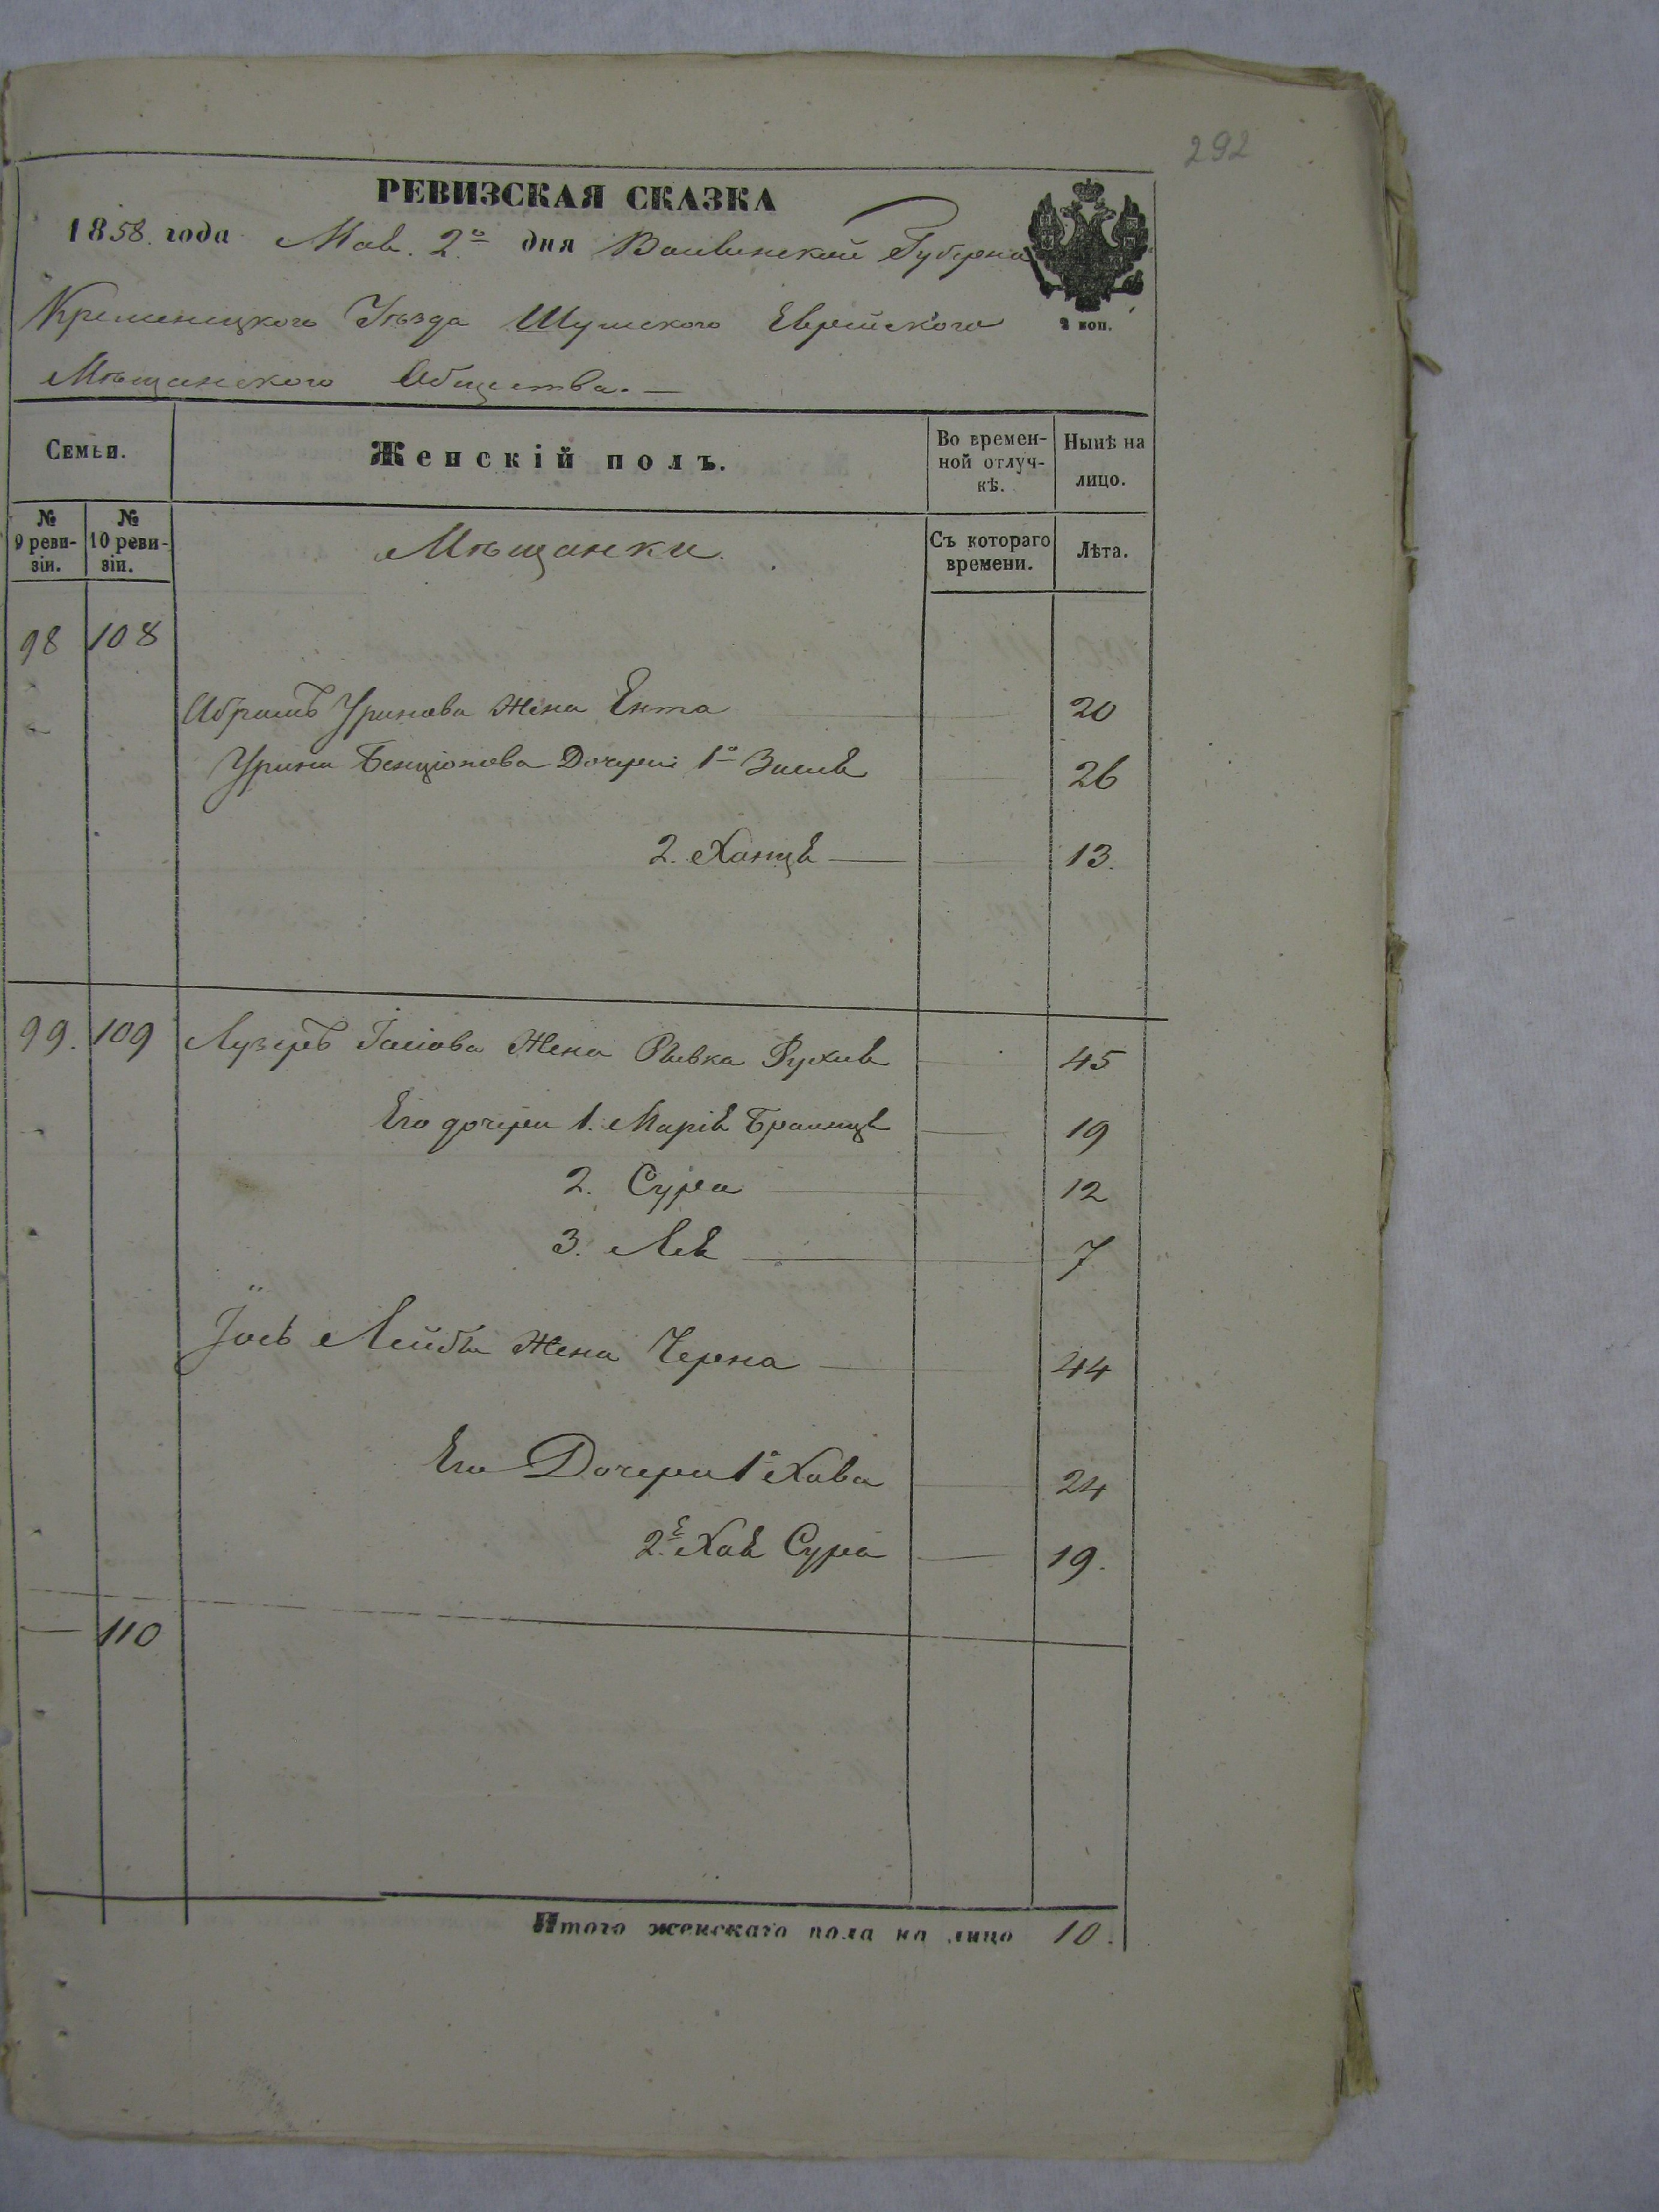 292
РЕВИЗСКАЯ СКАЗКА
1858. года Маѣ. 2го дня Волынской Губерніи
Кременецкого Уѣзда Шумского Еврейского
2 коп.
Мѣщанского Общества. —
Семьи. Женскій полъ. Во времен-ной отлуч-кѣ. Нынѣ на лицо.
№ 9 реви-зіи. № 10 реви-зіи. Мѣщанки. Съ котораго времени. Лѣта.
98 108
Абрамъ Уринова Жена Ента 20
Урина Бенціонова Дочери 1я 26
2. Ханцѣ 13.
99. 109 Лузеръ Жена Рывка Рухлѣ 45
Его дочери 1. Маріѣ Браинцѣ 19
2. Сура 12
3. Леѣ 7
Іосъ Лейбы Жена Черна 44
Его Дочери 1я Хава 24
2я Хаѣ Сура 19.
— 110
Итого женскаго пола на лицо 10.